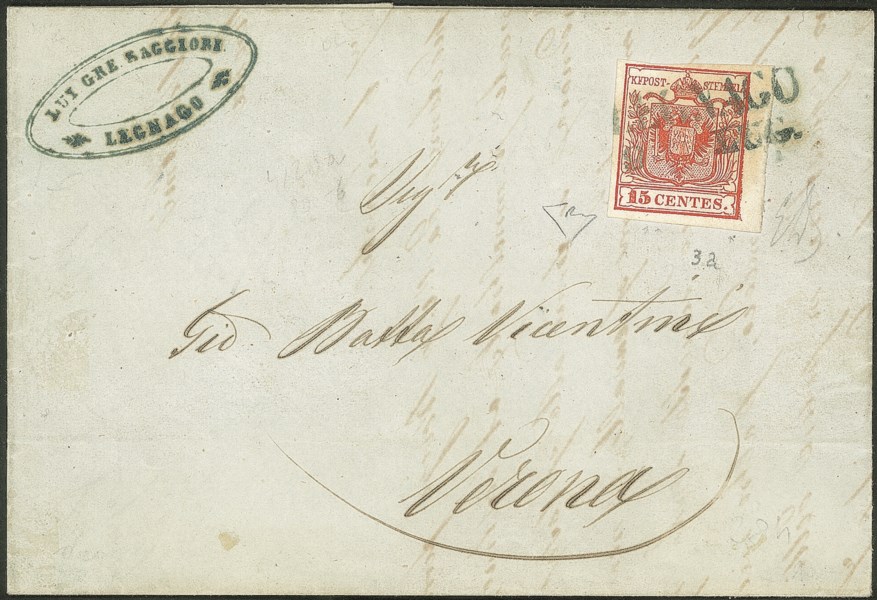 LUI GRE SAGGIORI.
LEGNAGO
KKPOST-STEMPEL
15 CENTES.
LEGNAGO
Sigr
Gio. Batta Vicentini
Verona
3a